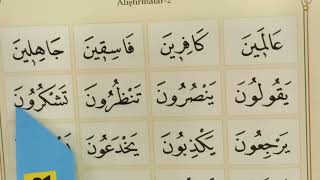 Alıştırmalar-2
عَالَمِينَ كَافِرِينَ فَاسِقِينَ جَاهِلِينَ
يَقُولُونَ يَنْصُرُونَ تَنْظُرُونَ تَشْكُرُونَ
يَرْجِعُونَ يَكْذِبُونَ يَخْدَعُونَ